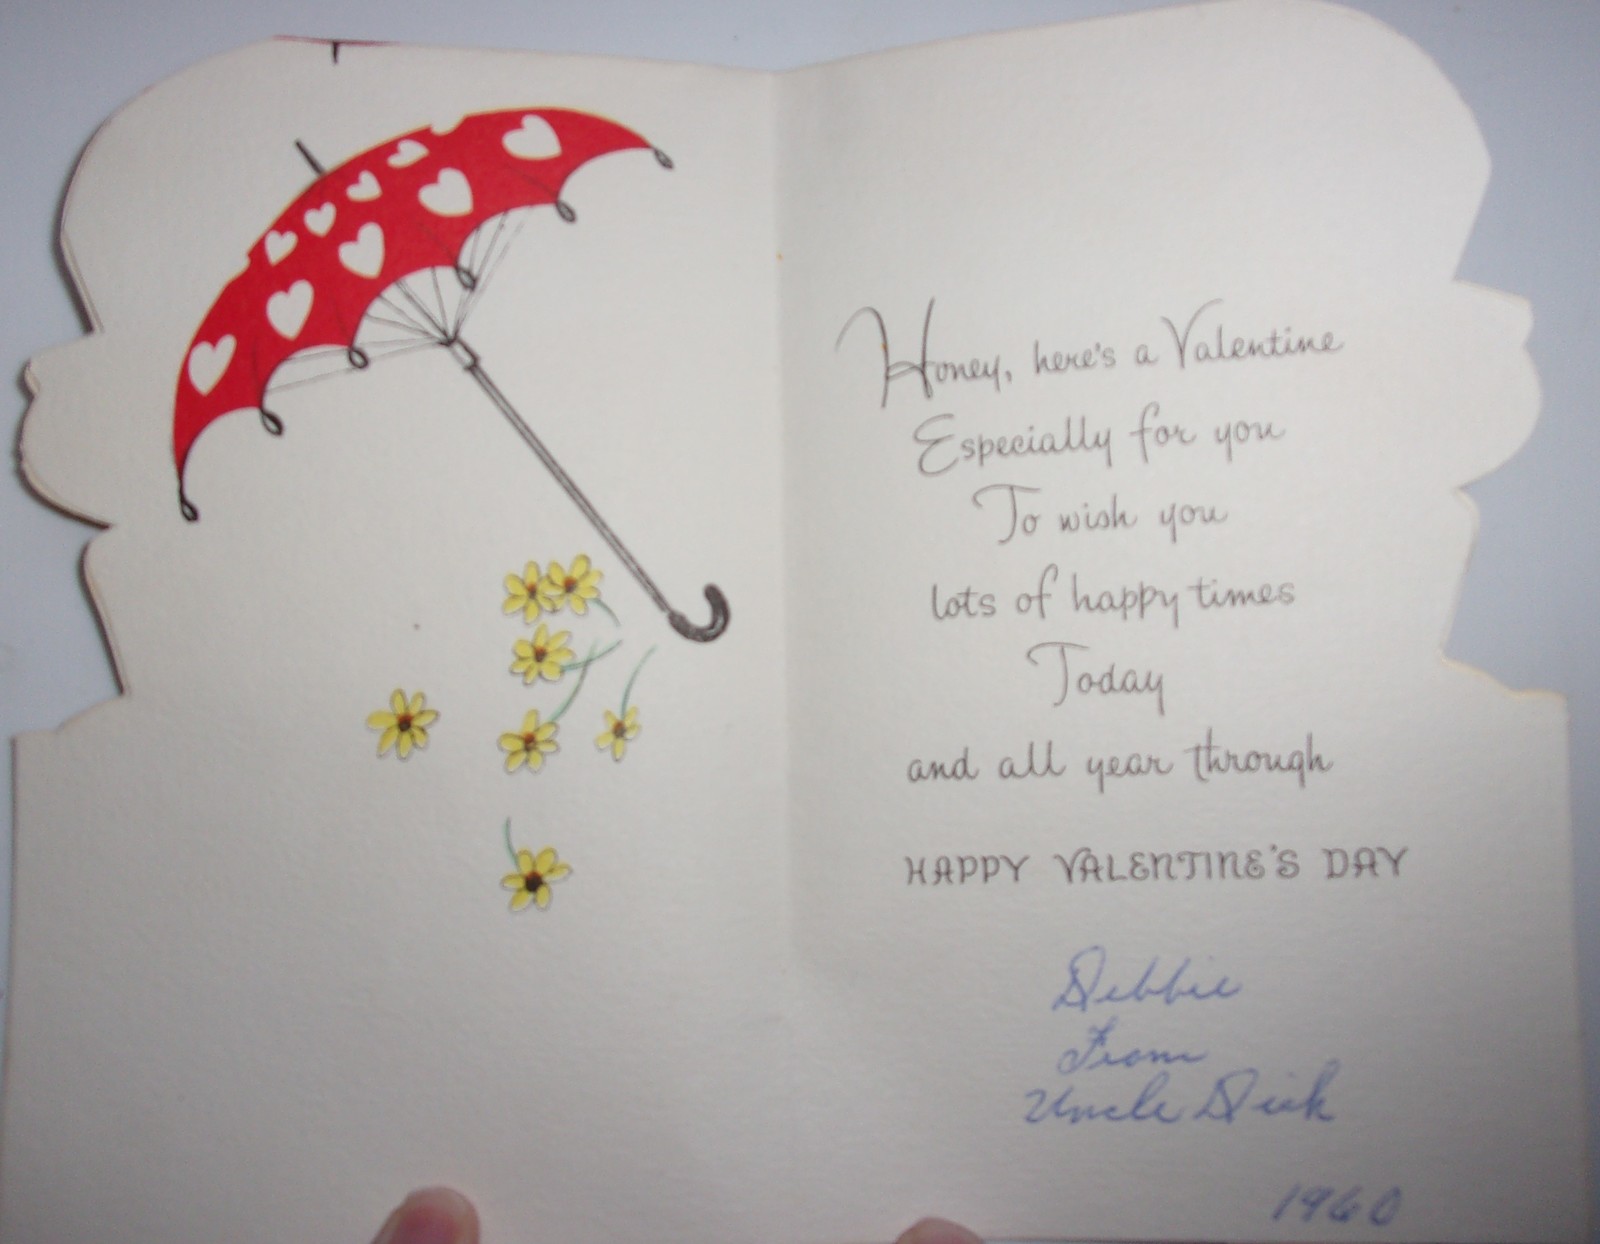 Honey, here's a Valentine
Especially for you
To wish you
lots of happy times
Today
and all year through
HAPPY VALENTINE'S DAY
Debbie
From
Uncle Dick
1960